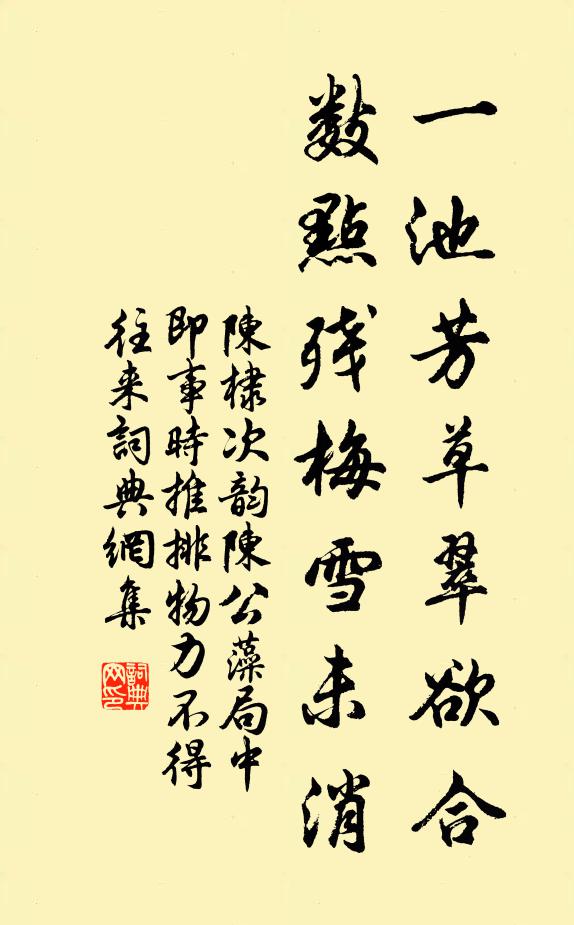 一池芳草翠欲合
數點残梅雪未消
陳棣次韵陳公藻局中
即事時推排物力不得
往来詞典網集
詞典网印